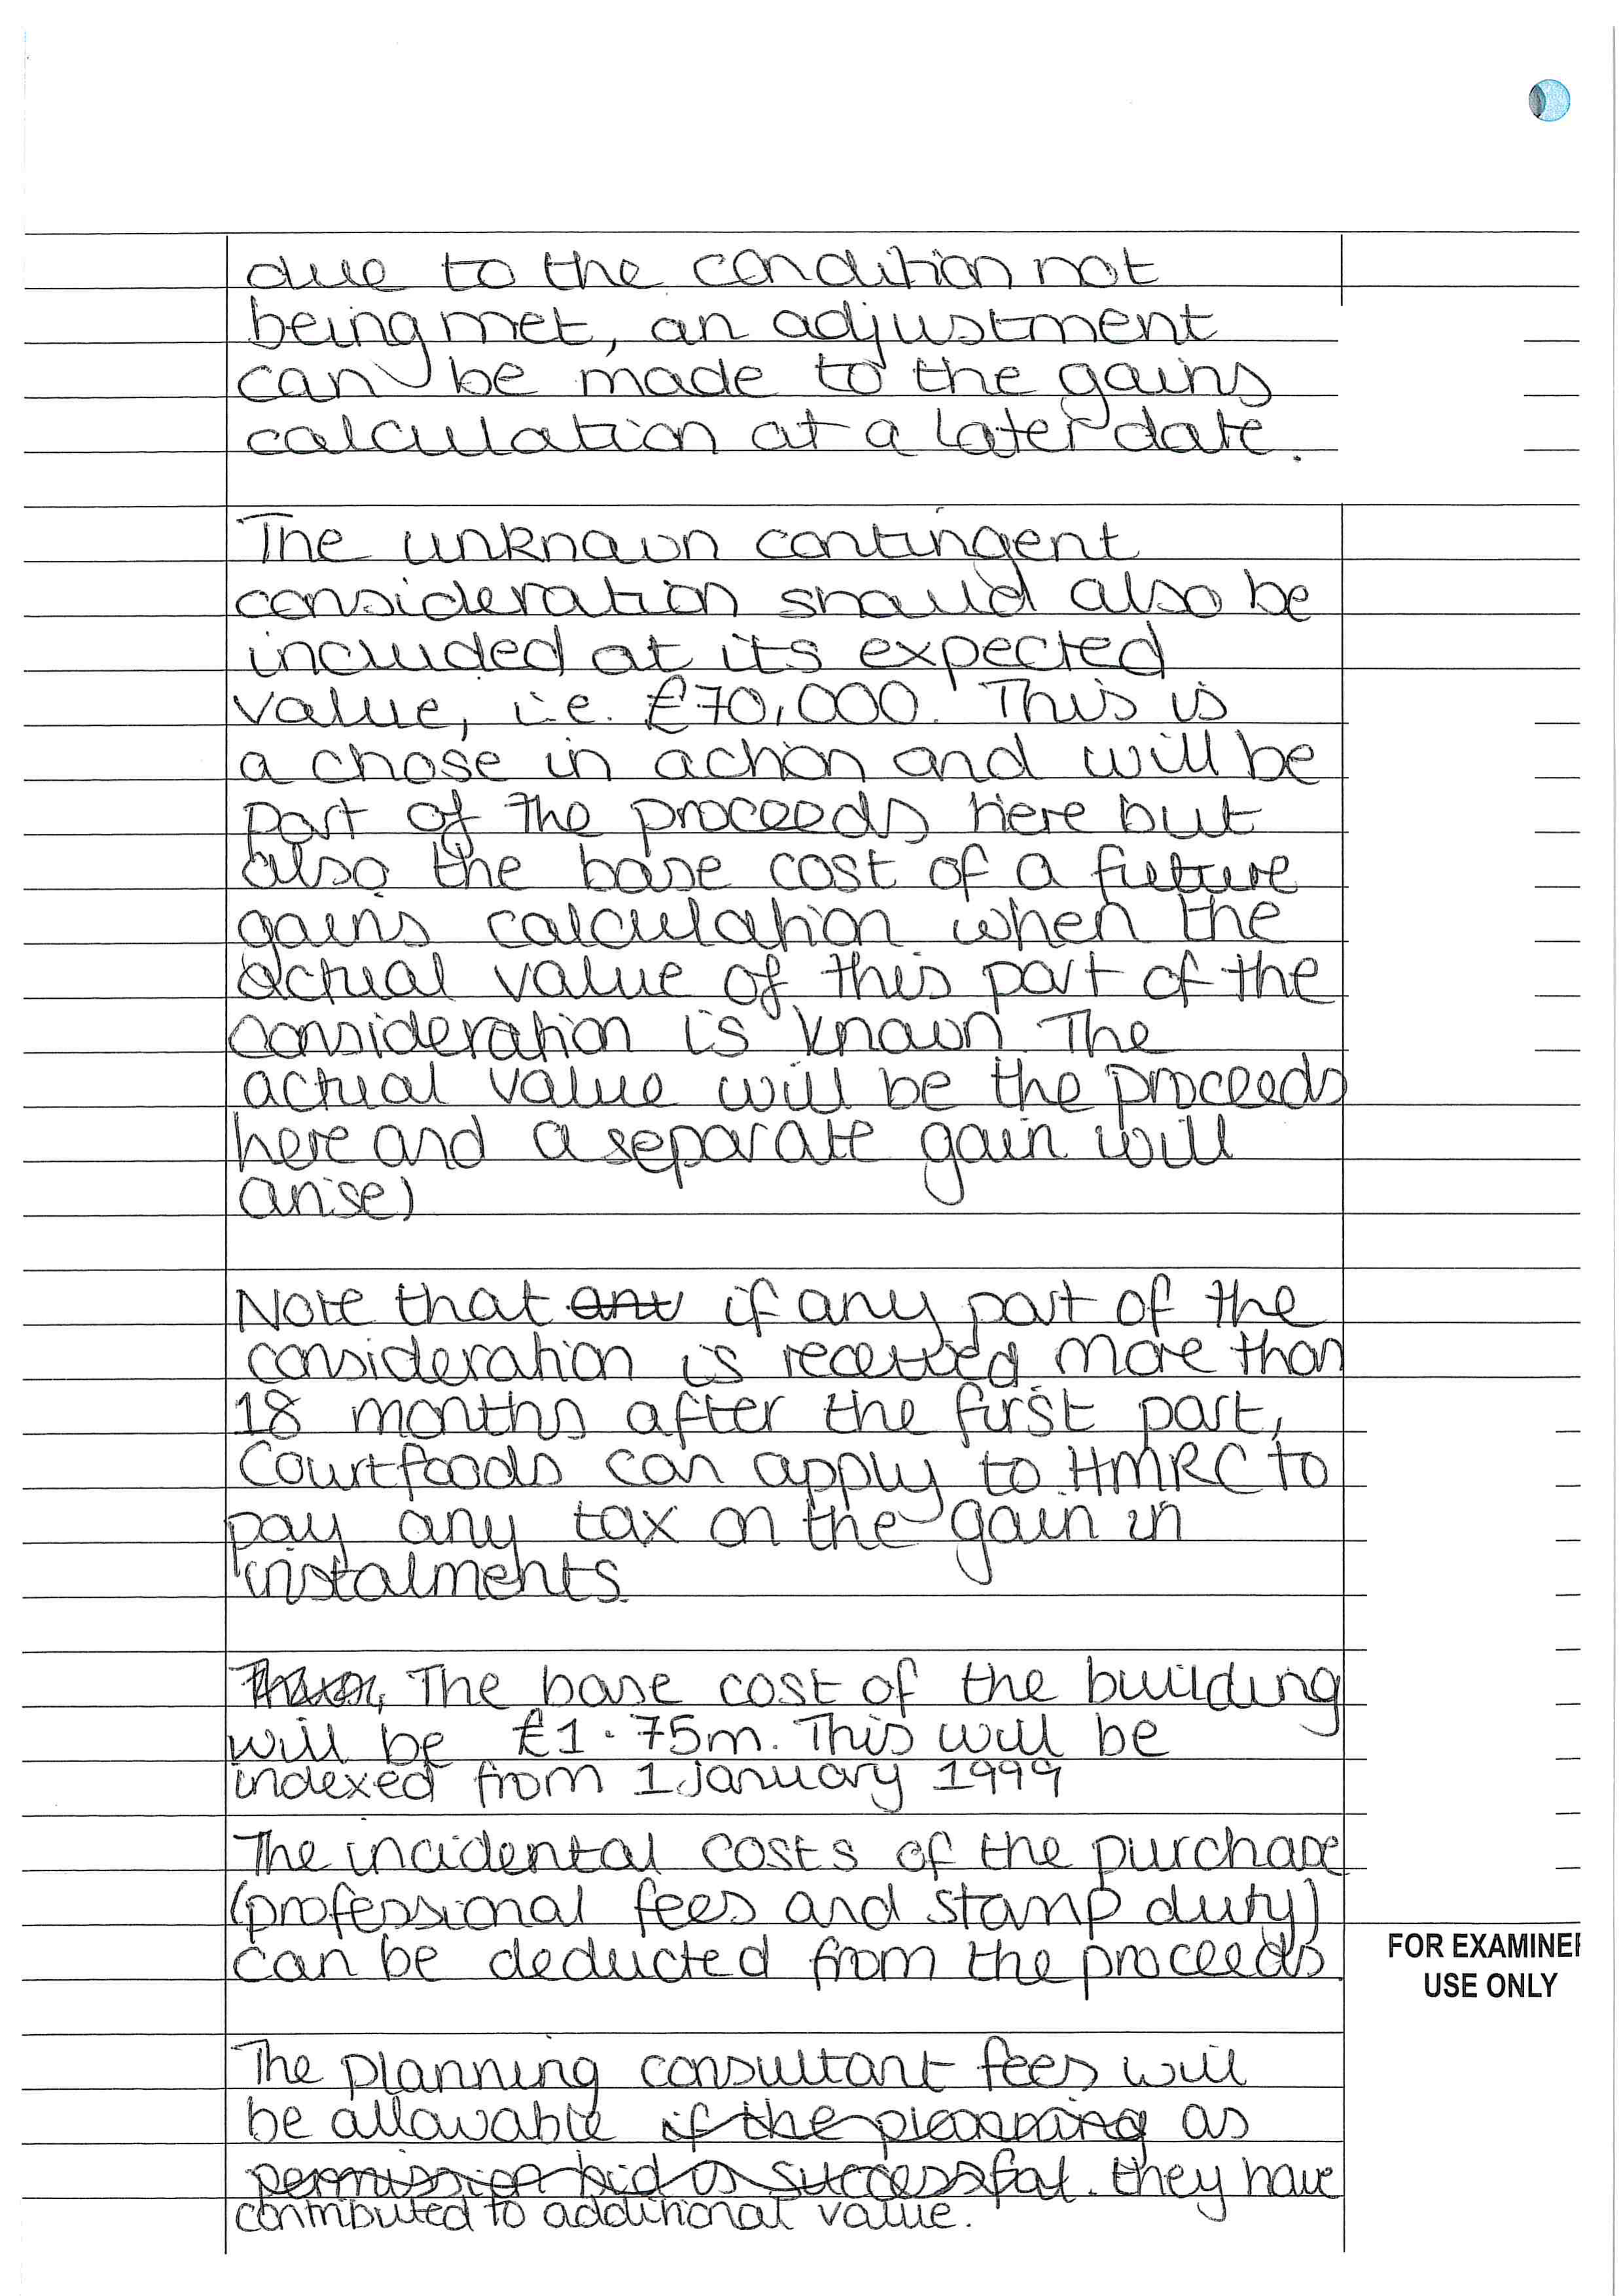 due to the condition not
being met, an adjustment
can be made to the gains
calculation at a later date.
The unknown contingent
consideration should also be
included at its expected
value, i.e. £70,000. This is
a chose in action and will be
part of the proceeds here but
also the base cost of a future
gains calculation when the
actual value of this part of the
consideration is known. The
actual value will be the proceeds
here and a separate gain will
arise)
Note that any if any part of the
consideration is received more than
18 months after the first part,
Courtfoods can apply to HMRC to
pay any tax on the gain in
instalments.
The base cost of the building
will be £1.75m. This will be
indexed from 1 January 1999
The incidental costs of the purchase
(professional fees and stamp duty)
can be deducted from the proceeds.
FOR EXAMINER
USE ONLY
The planning consultant fees will
be allowable if the planning as
permission bid is successful. they have
contributed to additional value.